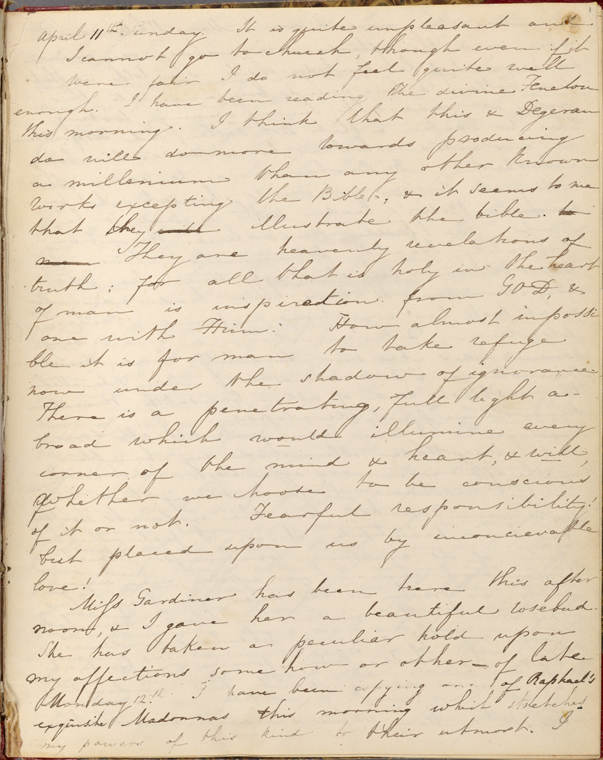 April 11th. Sunday It is quite unpleasant and
I cannot go to church, though even if it
were fair I do not feel quite well
enough. I have been reading the divine Fenelon
this morning. I think that this & Degeran
do will do more towards producing
a millenium than any other known
works excepting the Bible, & it seems to me
that they illustrate the bible. to
They are heavenly revelations of
truth; for all that is holy in the heart
of man is inspiration from GOD, &
one with Him! How almost impossi
ble it is for man to take refuge
now under the shadow of ignorance.
There is a penetrating, full light a-
broad which would illumine every
corner of the mind & heart, & will,
whether we choose to be conscious
of it or not. Fearful responsibility!
but placed upon us by inconcievable
love!
Miss Gardiner has been here this after
noon, & I gave her a beautiful rosebud.
She has taken a peculiar hold upon
my affections some how or other of late
Monday 12th. I have been copying one of Raphael's
exquisite Madonnas this morning which stretches
my powers of this kind to their utmost. I